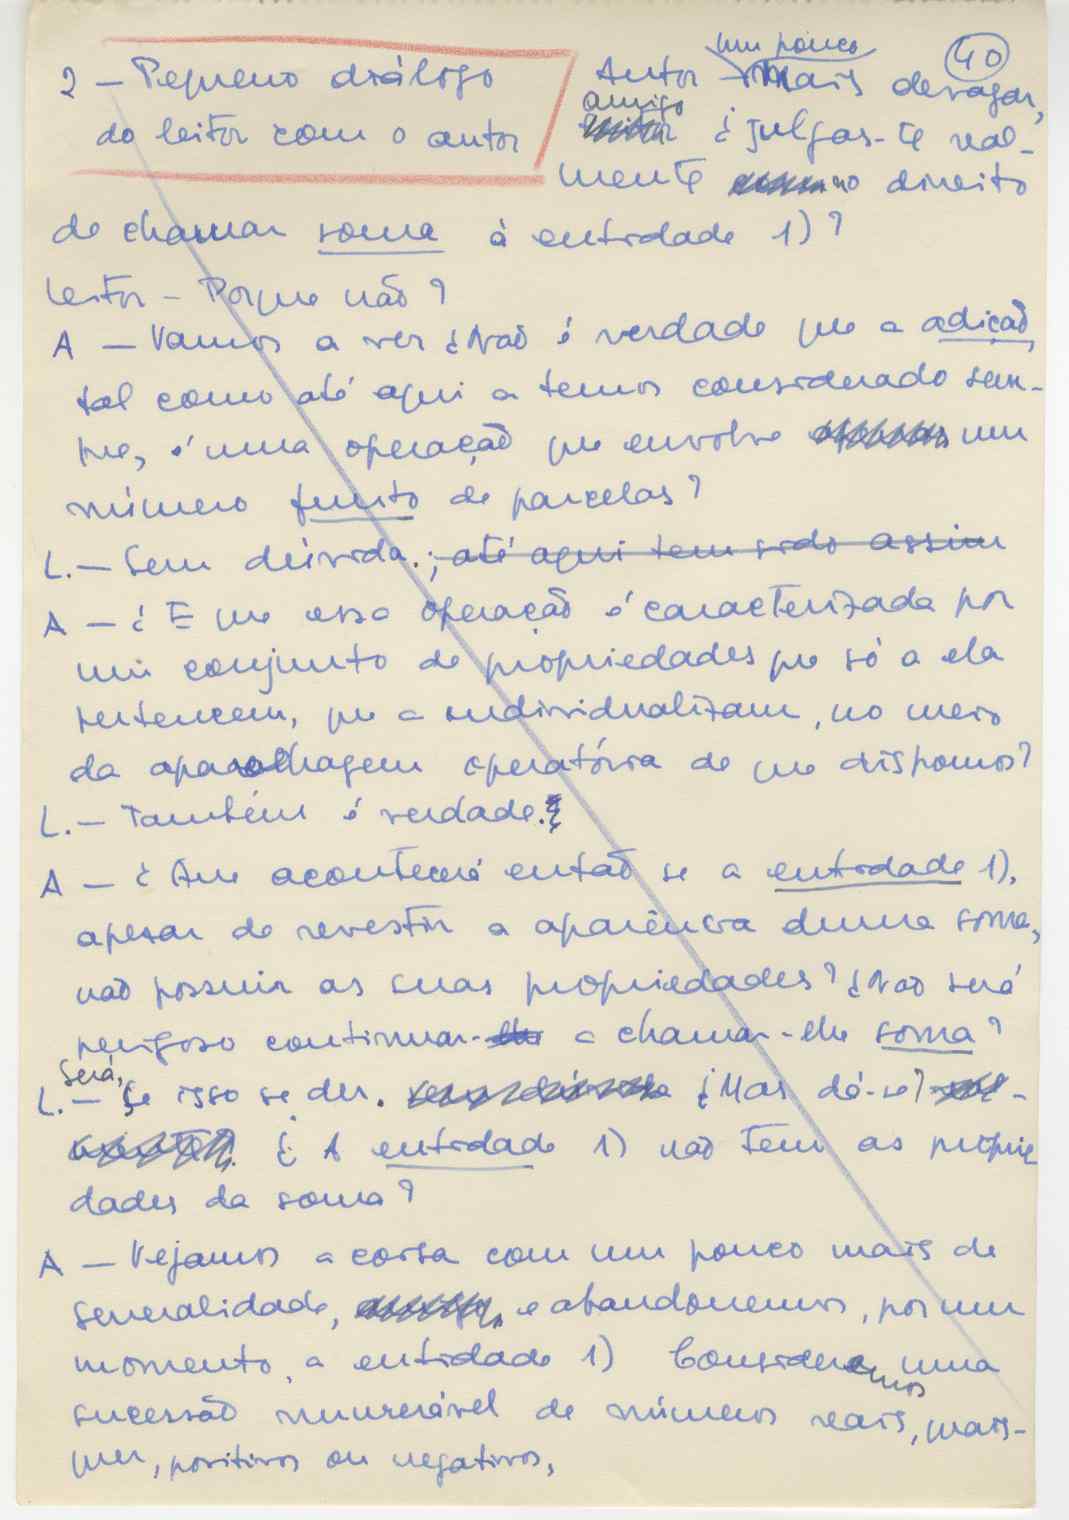 40
2 — Pequeno diálogo
do leitor com o autor
Autor — um pouco mais devagar,
amigo ¿julgas-te real-
mente no direito
de chamar soma à entidade 1)?
Leitor — Porque não?
A — Vamos a ver ¿Não é verdade que a adição,
tal como até aqui a temos considerado sem-
pre, é uma operação que envolve um
número finito de parcelas?
L. — Sem dúvida.; até aqui tem sido assim
A — ¿E que essa operação é caracterizada por
um conjunto de propriedades que só a ela
pertencem, que a individualizam, no meio
da aparelhagem operatória de que dispomos?
L. — Também é verdade.
A — ¿Que acontecerá então se a entidade 1),
apesar de revestir a aparência duma soma,
não possuir as suas propriedades? ¿Não será
perigoso continuar- a chamar-lhe soma?
L. — Será, se isso se der. ¿Mas dá-se?
¿A entidade 1) não tem as proprie
dades da soma?
A — Vejamos a coisa com um pouco mais de
generalidade, e abandonemos, por um
momento, a entidade 1) Consideremos uma
sucessão numerável de números reais, quais-
quer, positivos ou negativos,